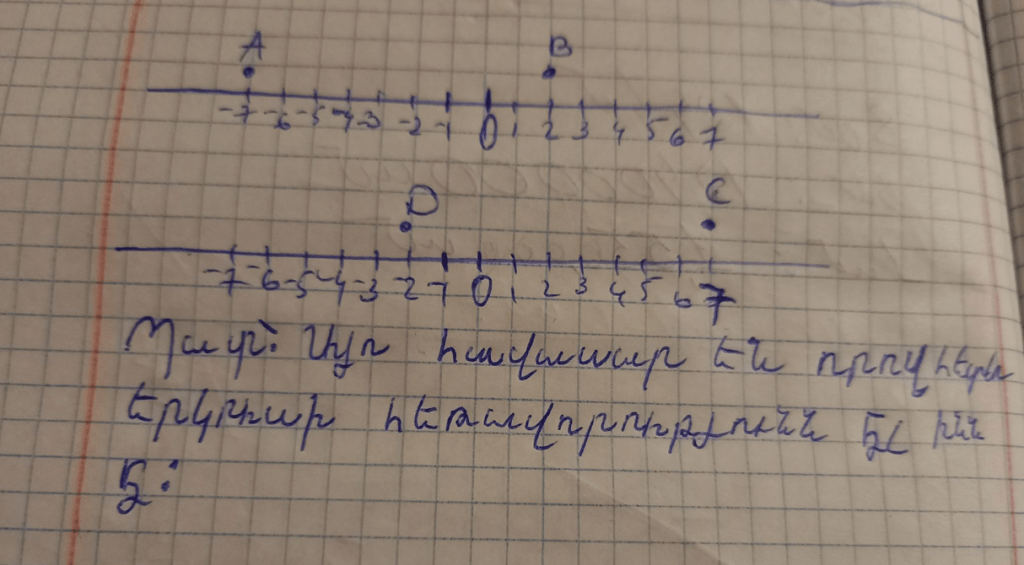 A B
-7 -6 -5 -4 -3 -2 -1 0 1 2 3 4 5 6 7
D C
-7 -6 -5 -4 -3 -2 -1 0 1 2 3 4 5 6 7
Պատ՝. Այո հավասար են որովհետև
երկուսի հեռավորությունն էլ ինն
է: